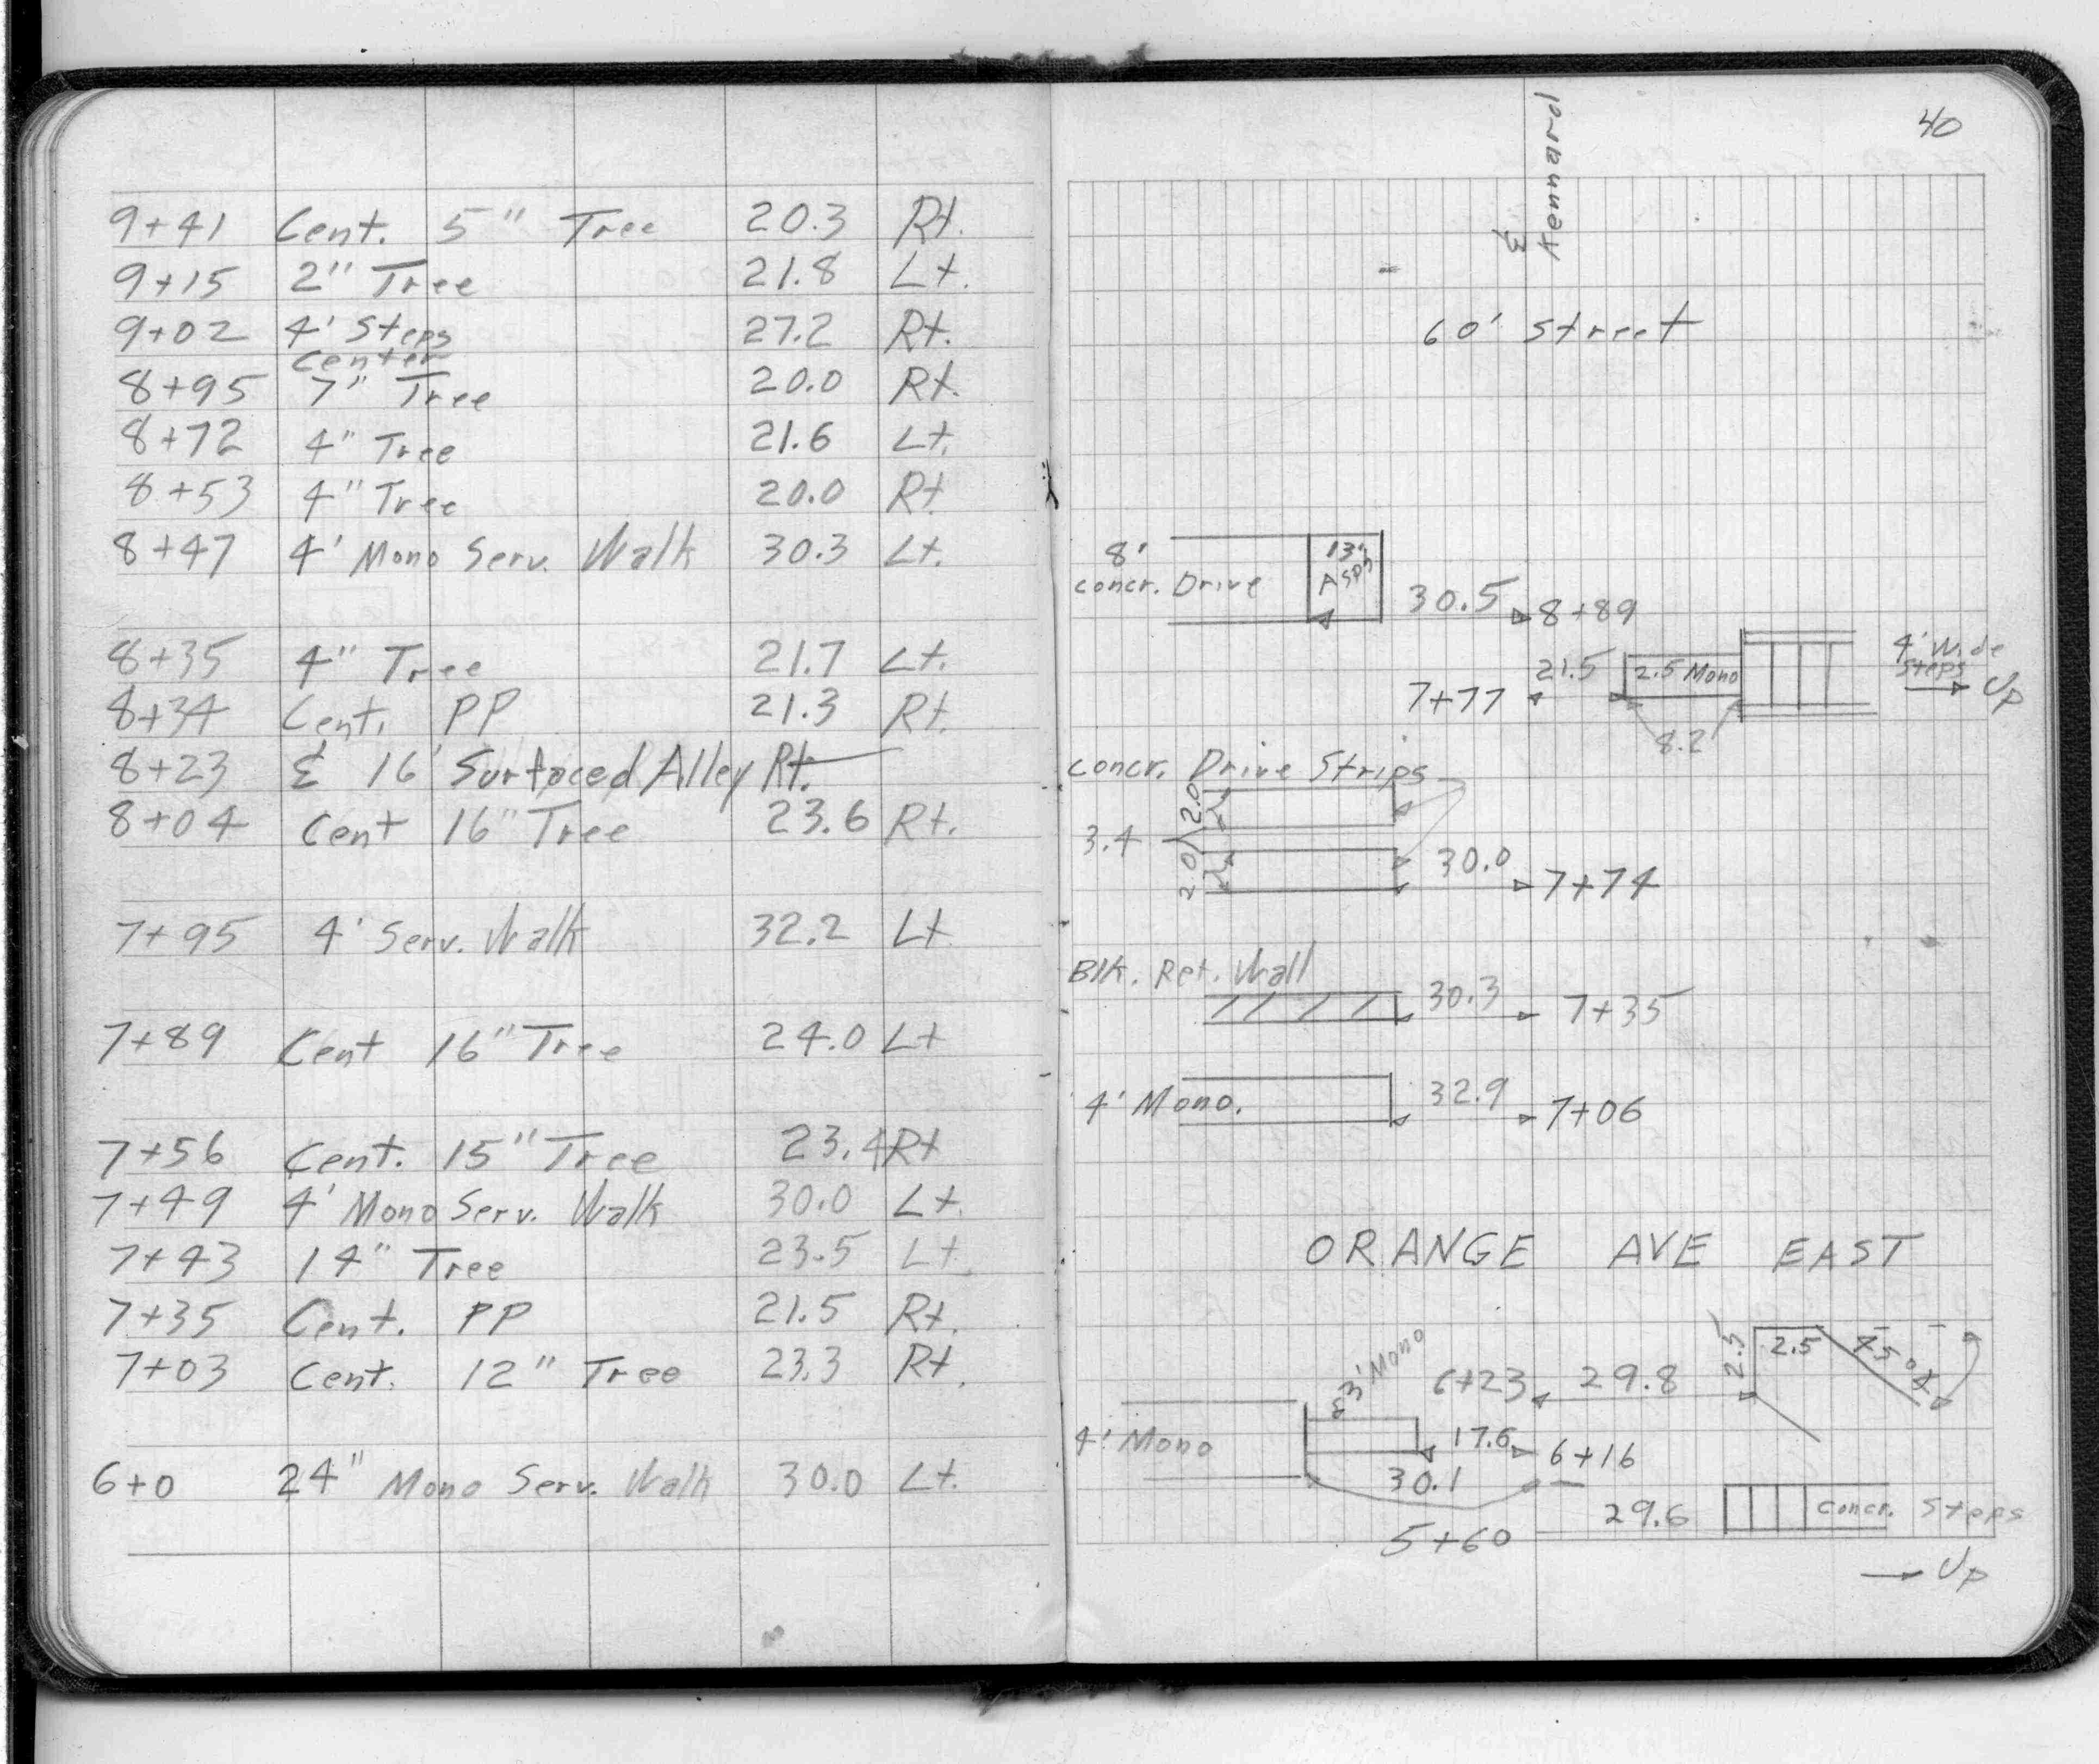 9+41 Cent. 5" Tree 20.3 Rt.
9+15 2" Tree 21.8 Lt.
9+02 4' Steps 27.2 Rt.
center
8+95 7" Tree 20.0 Rt.
8+72 4" Tree 21.6 Lt.
8+53 4" Tree 20.0 Rt
8+47 4' Mono Serv. Walk 30.3 Lt.
8+35 4" Tree 21.7 Lt.
8+34 Cent. PP 21.3 Rt.
8+23 ℄ 16' Surfaced Alley Rt.
8+04 Cent 16" Tree 23.6 Rt.
7+95 4' Serv. Walk 32.2 Lt
7+89 Cent 16" Tree 24.0 Lt
7+56 Cent. 15" Tree 23.4 Rt
7+49 4' Mono Serv. Walk 30.0 Lt.
7+43 14" Tree 23.5 Lt.
7+35 Cent. PP 21.5 Rt.
7+03 Cent. 12" Tree 23.3 Rt.
6+0 24" Mono Serv. Walk 30.0 Lt.
40
℄
60' Street
8'
concr. Drive
13'
Asph
30.5 8+89
7+77 21.5 2.5 Mono
4' Wide
Steps
Up
8.2
concr. Drive Strips
2.0
3.4
2.0
30.0 7+74
Blk. Ret. Wall
30.3 7+35
4' Mono. 32.9 7+06
ORANGE AVE EAST
2.5 2.5
6+23 29.8
Mono
4' Mono 17.6 6+16
30.1
5+60 29.6 concr. Steps
Up